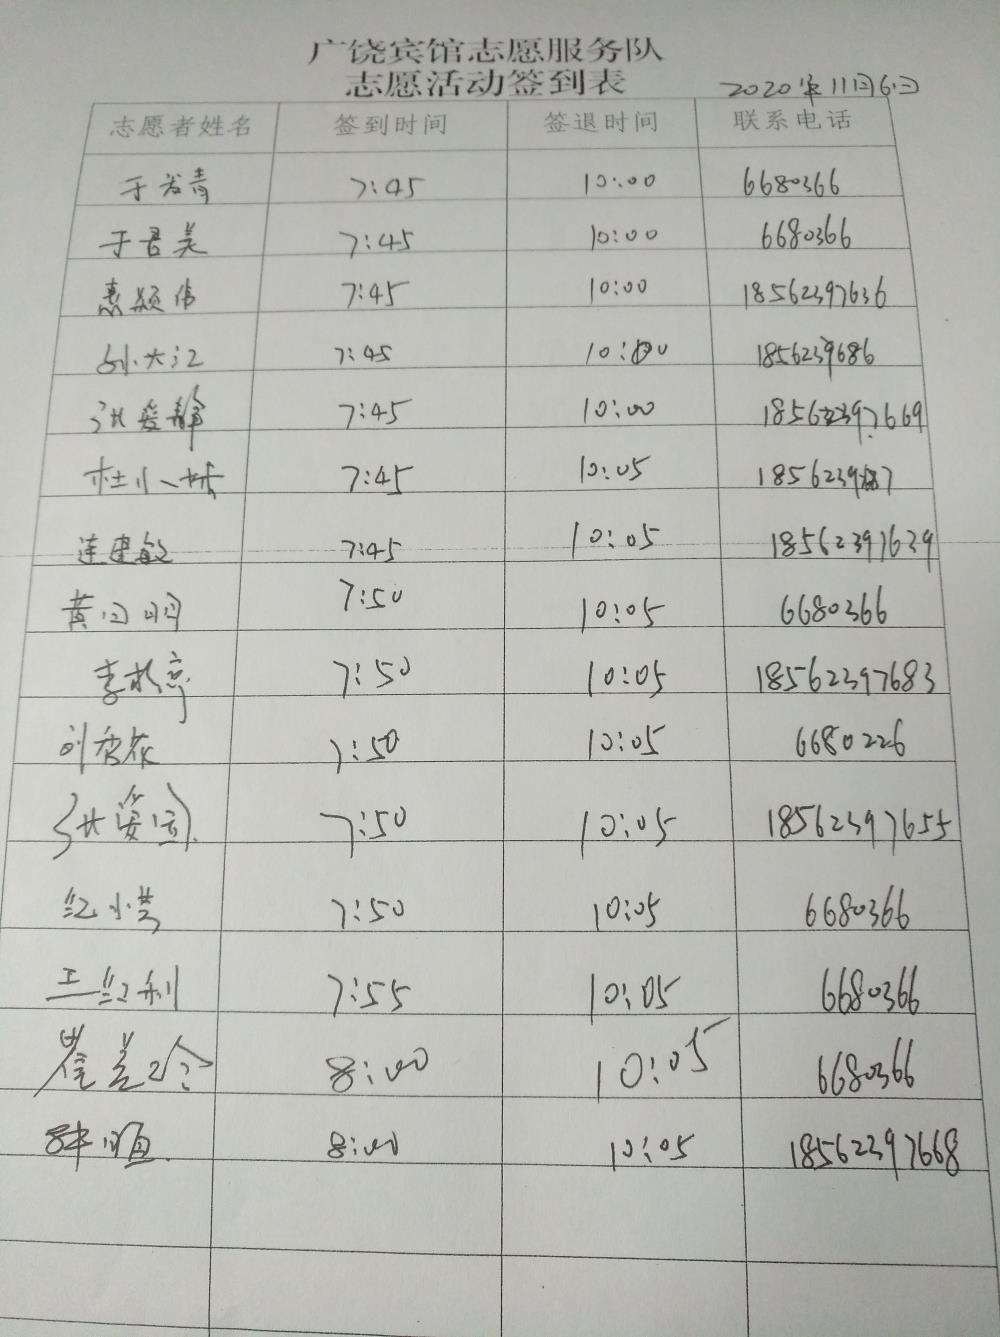 广饶宾馆志愿服务队
志愿活动签到表
2020年11月6日
志愿者姓名 签到时间 签退时间 联系电话
于 青 7:45 10:00 6680366
于君美 7:45 10:00 6680366
惠颖伟 7:45 10:00 18562397636
孙大江 7:45 10:00 1856239686
张爱静 7:45 10:00 18562397669
杜小 7:45 10:05
连建敏 7:45 10:05 18562397639
黄 明 7:50 10:05 6680366
李 亭 7:50 10:05 18562397683
刘香花 7:50 10:05 6680226
张 7:50 10:05 18562397655
红小芸 7:50 10:05 6680366
王红利 7:55 10:05 6680366
崔 8:00 10:05 6680366
8:00 10:05 18562397668